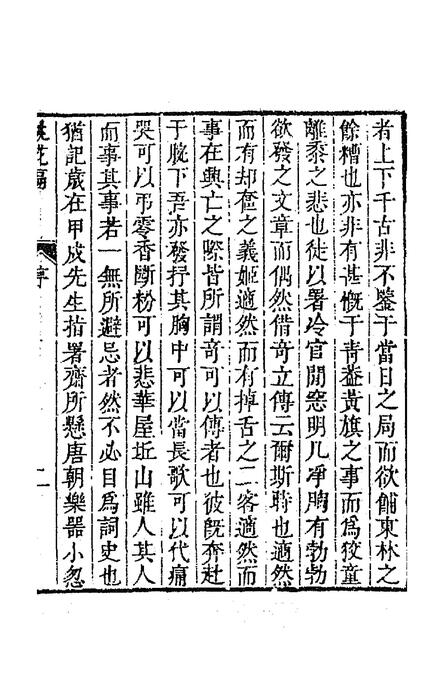 者上下千古非不鑒于當日之局而欲餔東林之
餘糟也亦非有甚慨于青蓋黃旗之事而爲狡童
離黍之悲也徒以署冷官閒窓明几净胸有勃勃
欲發之文章而偶然借奇立傳云爾斯時也適然
而有却奩之義姬適然而有掉舌之二客適然而
事在興亡之際皆所謂奇可以傳者也彼旣奔赴
于腕下吾亦發抒其胸中可以當長歌可以代痛
哭可以吊零香斷粉可以悲華屋坵山雖人其人
而事其事若一無所避忌者然不必目爲詞史也
猶記歲在甲戌先生指署齋所懸唐朝樂器小忽
桃花扇
序
二